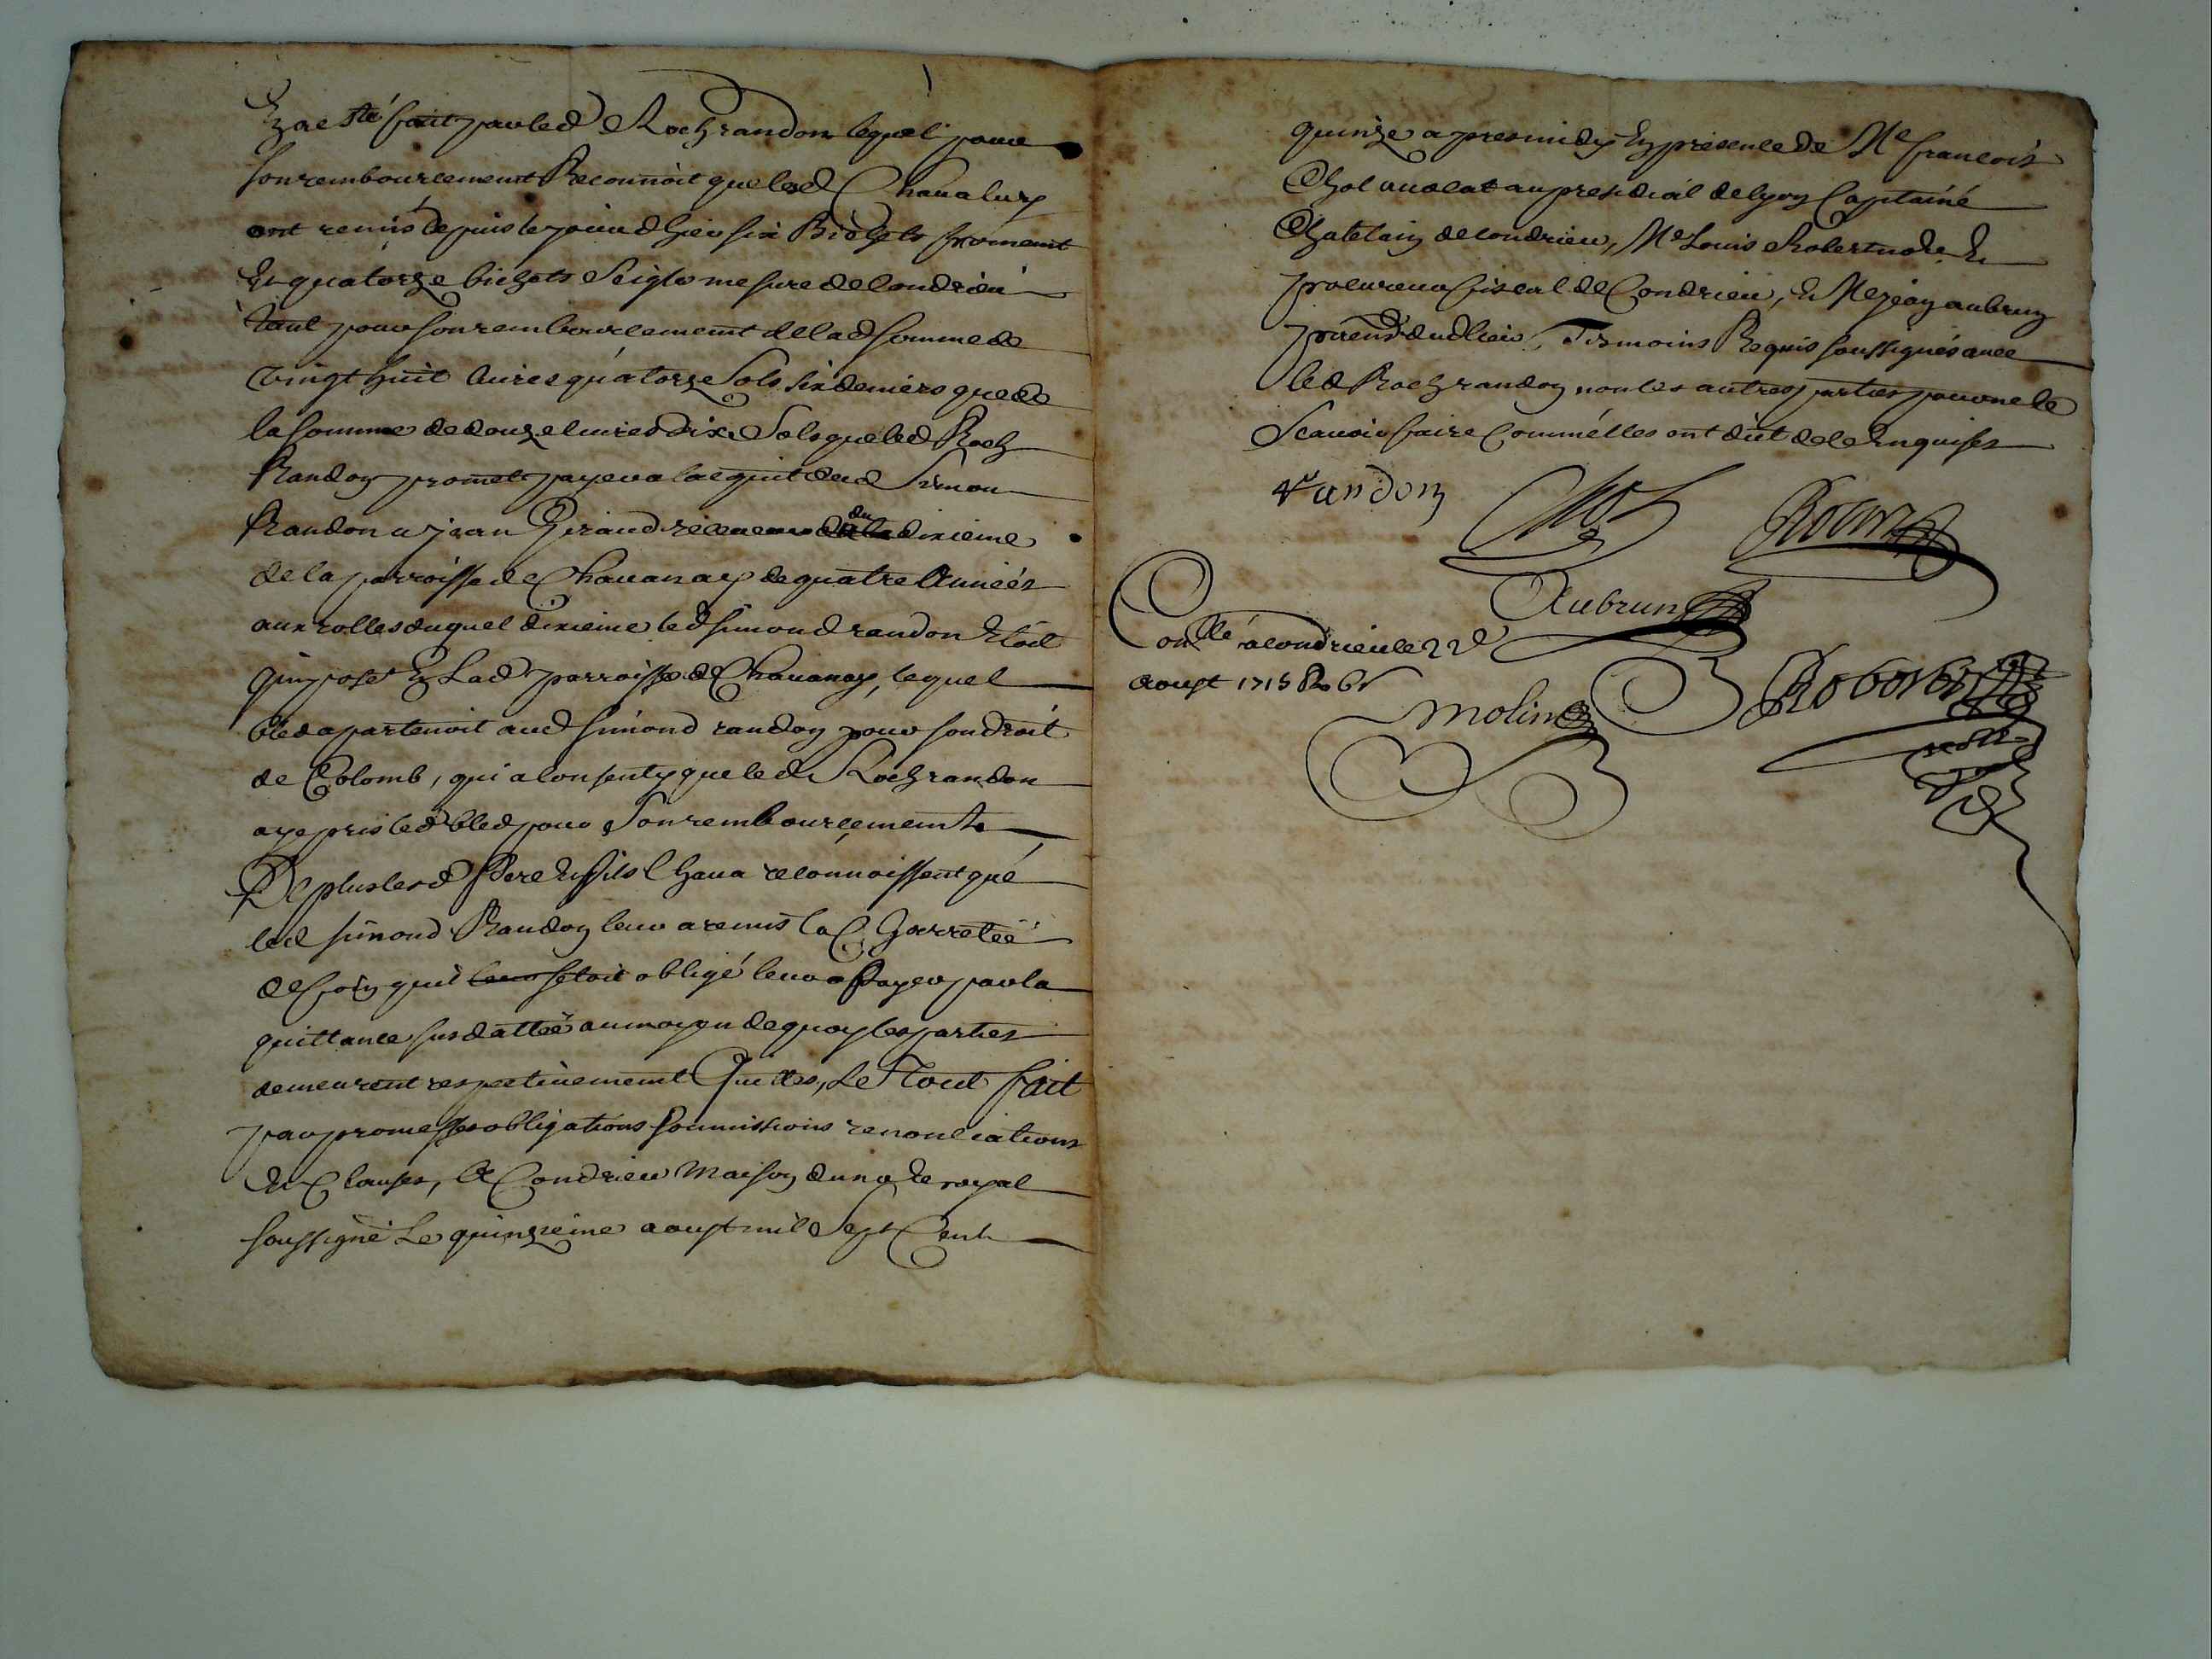 En a esté fait par led Roch randon lequel pour
son rembourcement Reconnoit que lesd Chava luy
ont remis depuis le jour d hier six Bichets froment
Et quatorze bichets Seigle mesure de Condrieu
tant pour son rembourcement de lad somme de
Vingt huit livres quatorze Sols six deniers que de
la somme de douze livres dix Sols que led Roch
Randon promet payer a lacquit dud Simon
Randon a jean Giraud receveur du dixieme
de la parroisse de Chavanay de quatre Années
aux rolles duquel dixieme led simond randon Etoit
jmposé En Lad parroisse de Chavanay, lequel
bled apartenoit aud simond randon pour son droit
de Colomb, qui a consenty que led Roch randon
aye pris led bled pour Son rembourcement
De plus lesd Pere Et fils Chava reconnoissent que
led simond Randon leur a remis la Charretée
de foin quil leur setoit obligé leur a Payer par la
quittance susdattée au moyen de quoy les parties
demeurent respectivement Quittes, Le Tout fait
par promesses obligations soumissions renonciations
Et Clauses, A Condrieu Maison du nore royal
soussigné Le quinzieme aoust mil Sept Cent
quinze apres midy En presence de Me francois
Chol avocat au presidial de lyon Capitaine
Chatelain de Condrieu, Me Louis Robert nore Et
procureur fiscal de Condrieu, Et Me jean aubrun
praticien dud lieu, Tesmoins Requis soussignés avec
led Roch randon non les autres parties pour ne le
Scavoir faire Comm'elles ont dit de ce Enquises
randon Chol Robert
Aubrun
Conllé a Condrieu le 22e
aoust 1715
Molin Robert